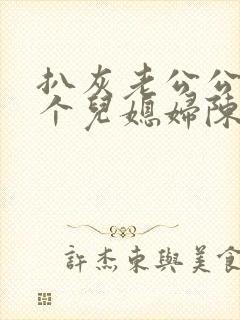 扒灰老公公
个兒媳婦陳
許杰東與美食